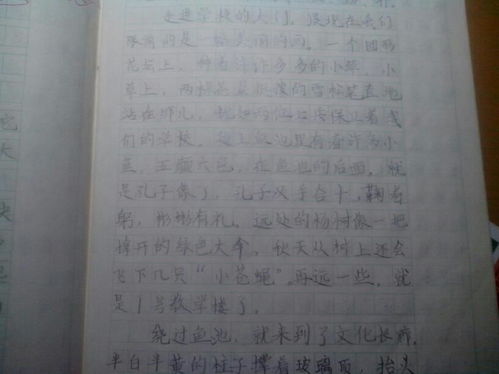 走进学校的大门，展现在我们
眼前的是一幅美丽的画。一个圆形
花坛上，种着许许多多的小草，小
草上，两棵 的雪松笔直地
站在那儿， 保卫着我
们的学校。 池里有着许多小
鱼，五颜六色，在鱼池的后面，就
是孔子像了，孔子双手合十，鞠着
躬，彬彬有礼。远处的杨树像一把
撑开的绿色大伞，秋天从树上还会
飞下几只“小苍蝇”。再远一些，就
是1号教学楼了。
绕过鱼池，就来到了文化长廊，
半白半黄的柱子撑着玻璃顶，抬头